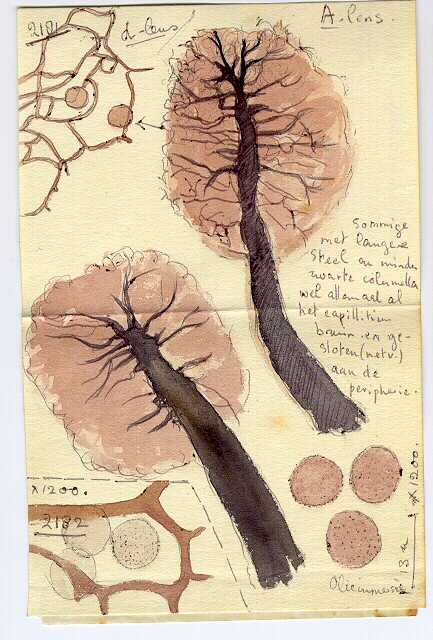 2181
A-lens.
L-lens
Sommige
met langere
Steel en minder
zwarte columella
wel allemaal al
het capillitium
bruin en ge-
sloten (netv.)
aan de
peripherie.
X1200.
2182
X 1200.
13 u